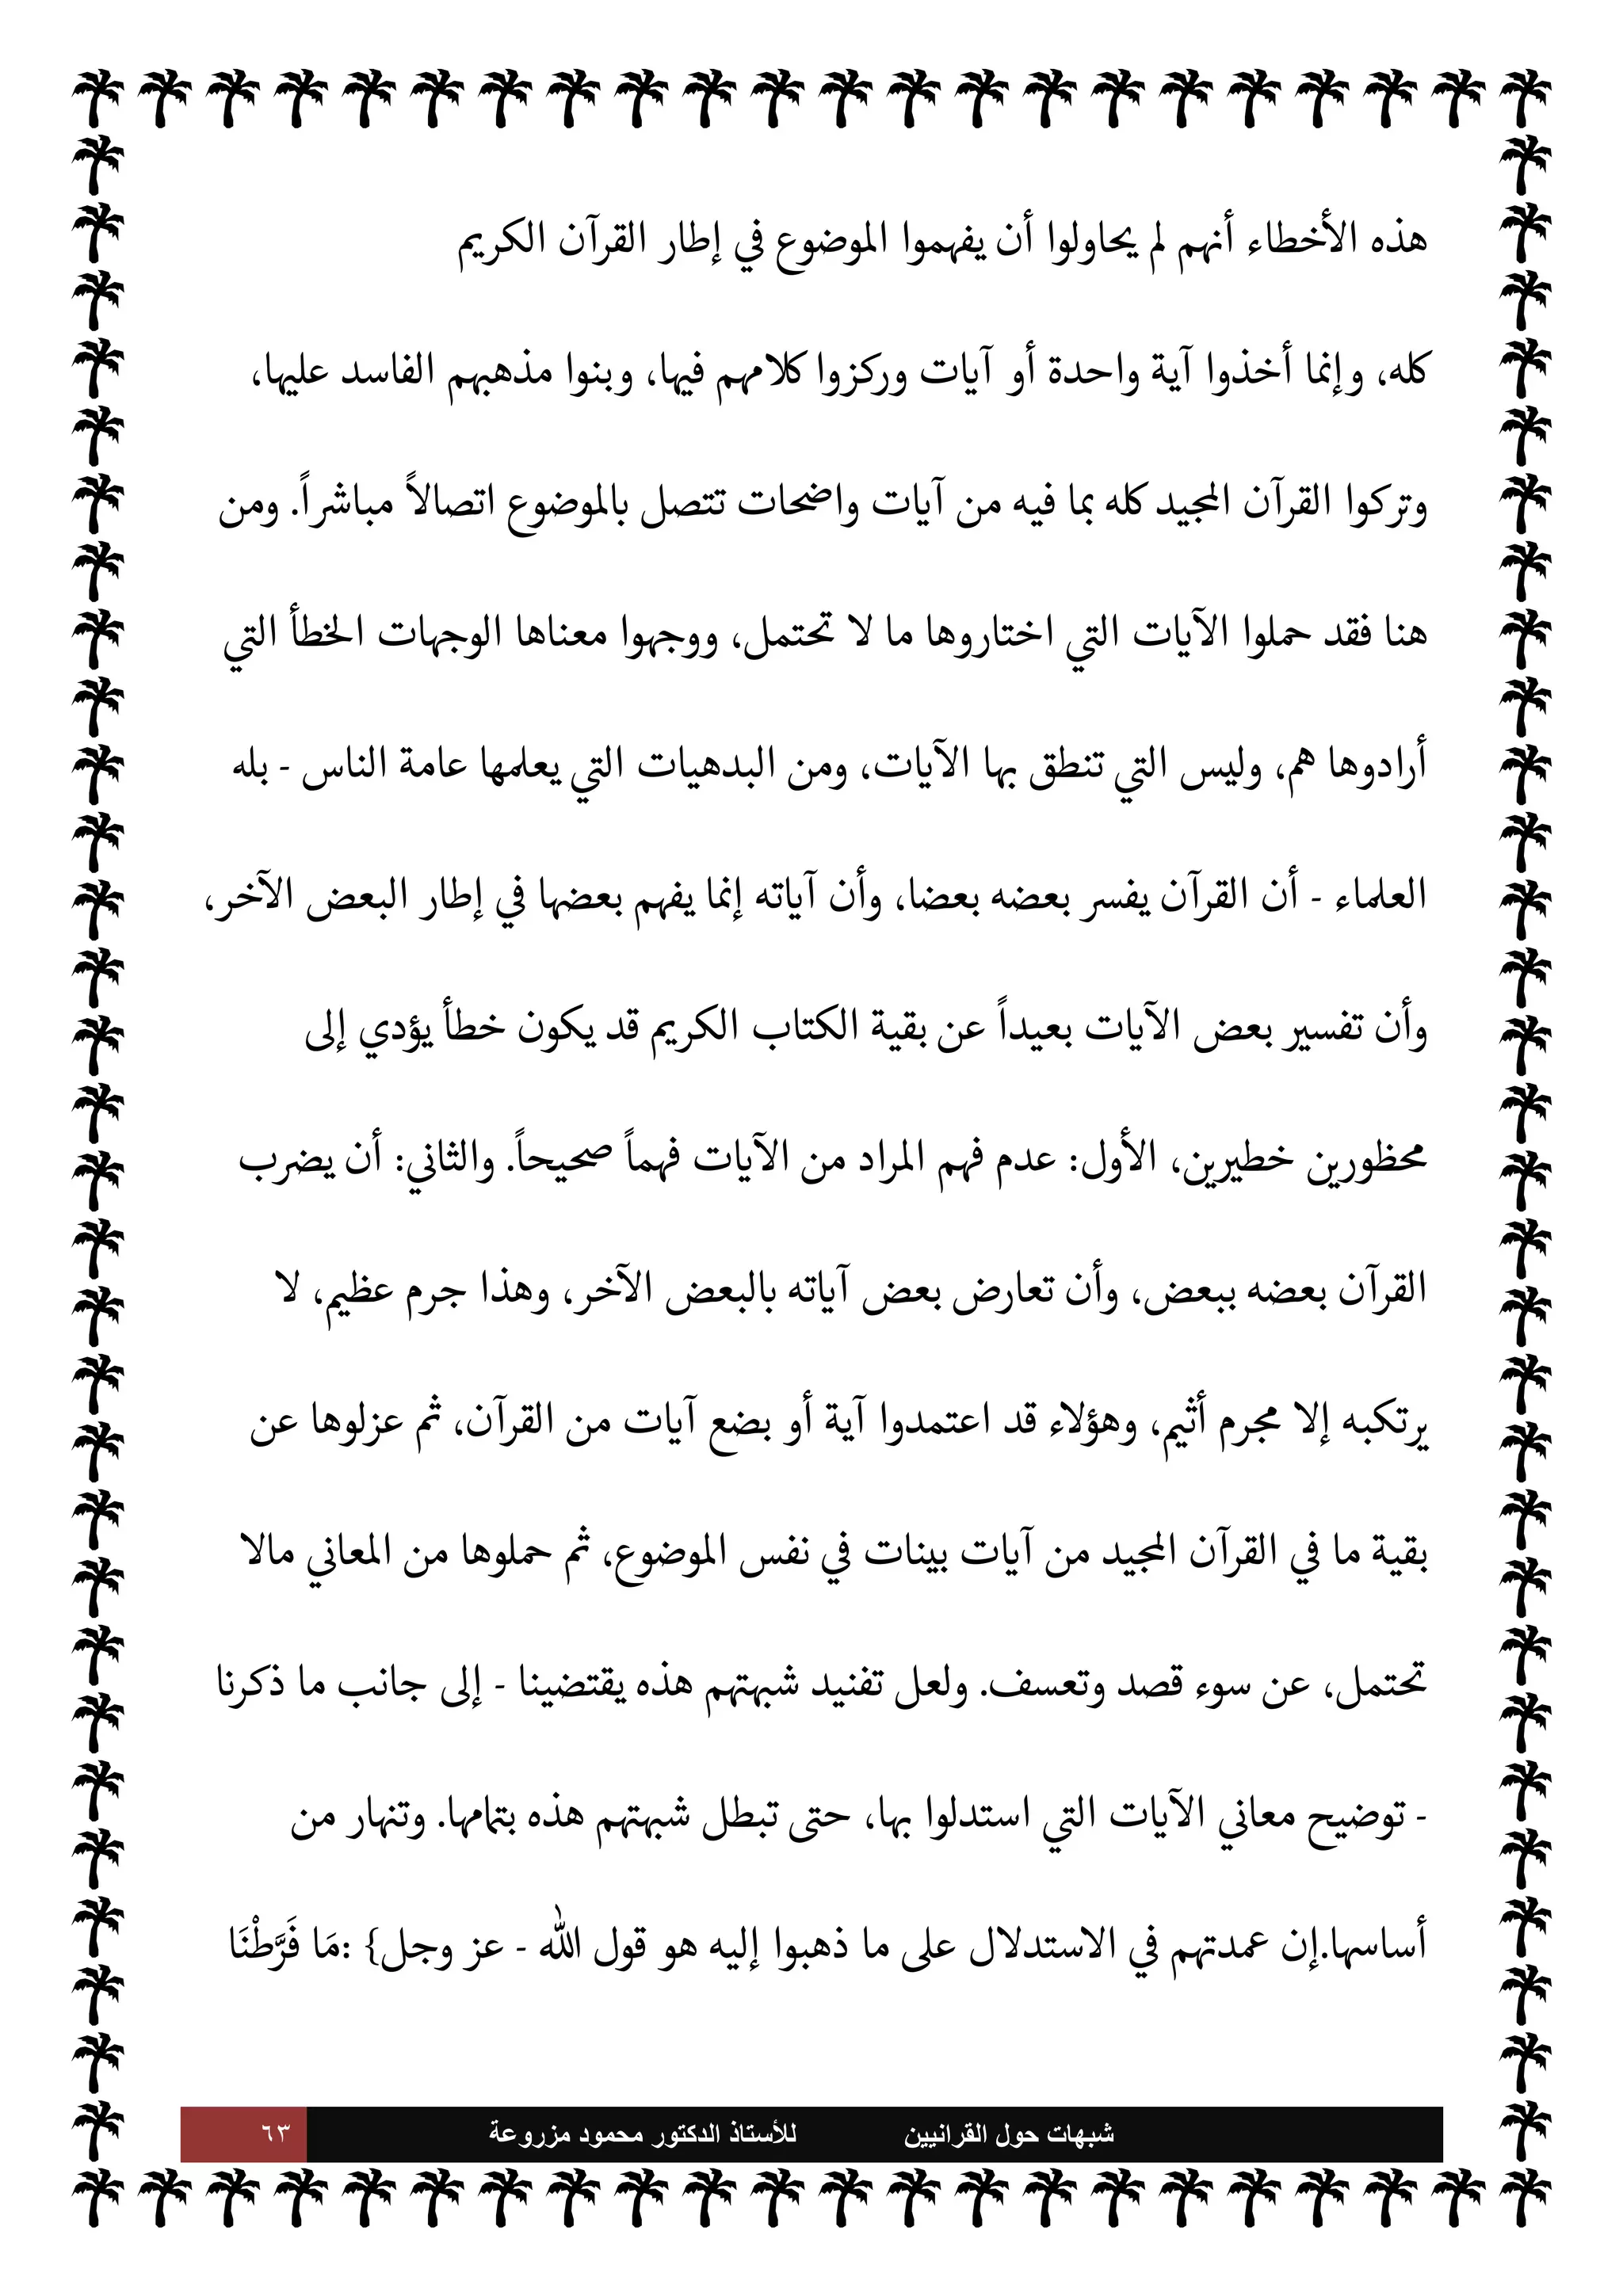 هذه الأخطاء أنهم لم يحاولوا أن يفهموا الموضوع في إطار القرآن الكريم
كله، وإنما أخذوا آية واحدة أو آيات وركزوا كلامهم فيها، وبنوا مذهبهم الفاسد عليها،
وتركوا القرآن المجيد كله بما فيه من آيات واضحات تتصل بالموضوع اتصالاً مباشراً. ومن
هنا فقد حملوا الآيات التي اختاروها ما لا تحتمل، ووجهوا معناها الوجهات الخطأ التي
أرادوها هم، وليس التي تنطق بها الآيات، ومن البدهيات التي يعلمها عامة الناس - بله
العلماء - أن القرآن يفسر بعضه بعضا، وأن آياته إنما يفهم بعضها في إطار البعض الآخر،
وأن تفسير بعض الآيات بعيداً عن بقية الكتاب الكريم قد يكون خطأ يؤدي إلى
محظورين خطيرين، الأول: عدم فهم المراد من الآيات فهماً صحيحاً. والثاني: أن يضرب
القرآن بعضه ببعض، وأن تعارض بعض آياته بالبعض الآخر، وهذا جرم عظيم، لا
يرتكبه إلا مجرم أثيم، وهؤلاء قد اعتمدوا آية أو بضع آيات من القرآن، ثم عزلوها عن
بقية ما في القرآن المجيد من آيات بينات في نفس الموضوع، ثم حملوها من المعاني مالا
تحتمل، عن سوء قصد وتعسف. ولعل تفنيد شبهتهم هذه يقتضينا - إلى جانب ما ذكرنا
- توضيح معاني الآيات التي استدلوا بها، حتى تبطل شبهتهم هذه بتمامها. وتنهار من
أساسها.إن عمدتهم في الاستدلال على ما ذهبوا إليه هو قول الله - عز وجل{ :مَا فَرَّطْنَا
شبهات حول القرانيين للأستاذ الدكتور محمود مزروعة ٦٣